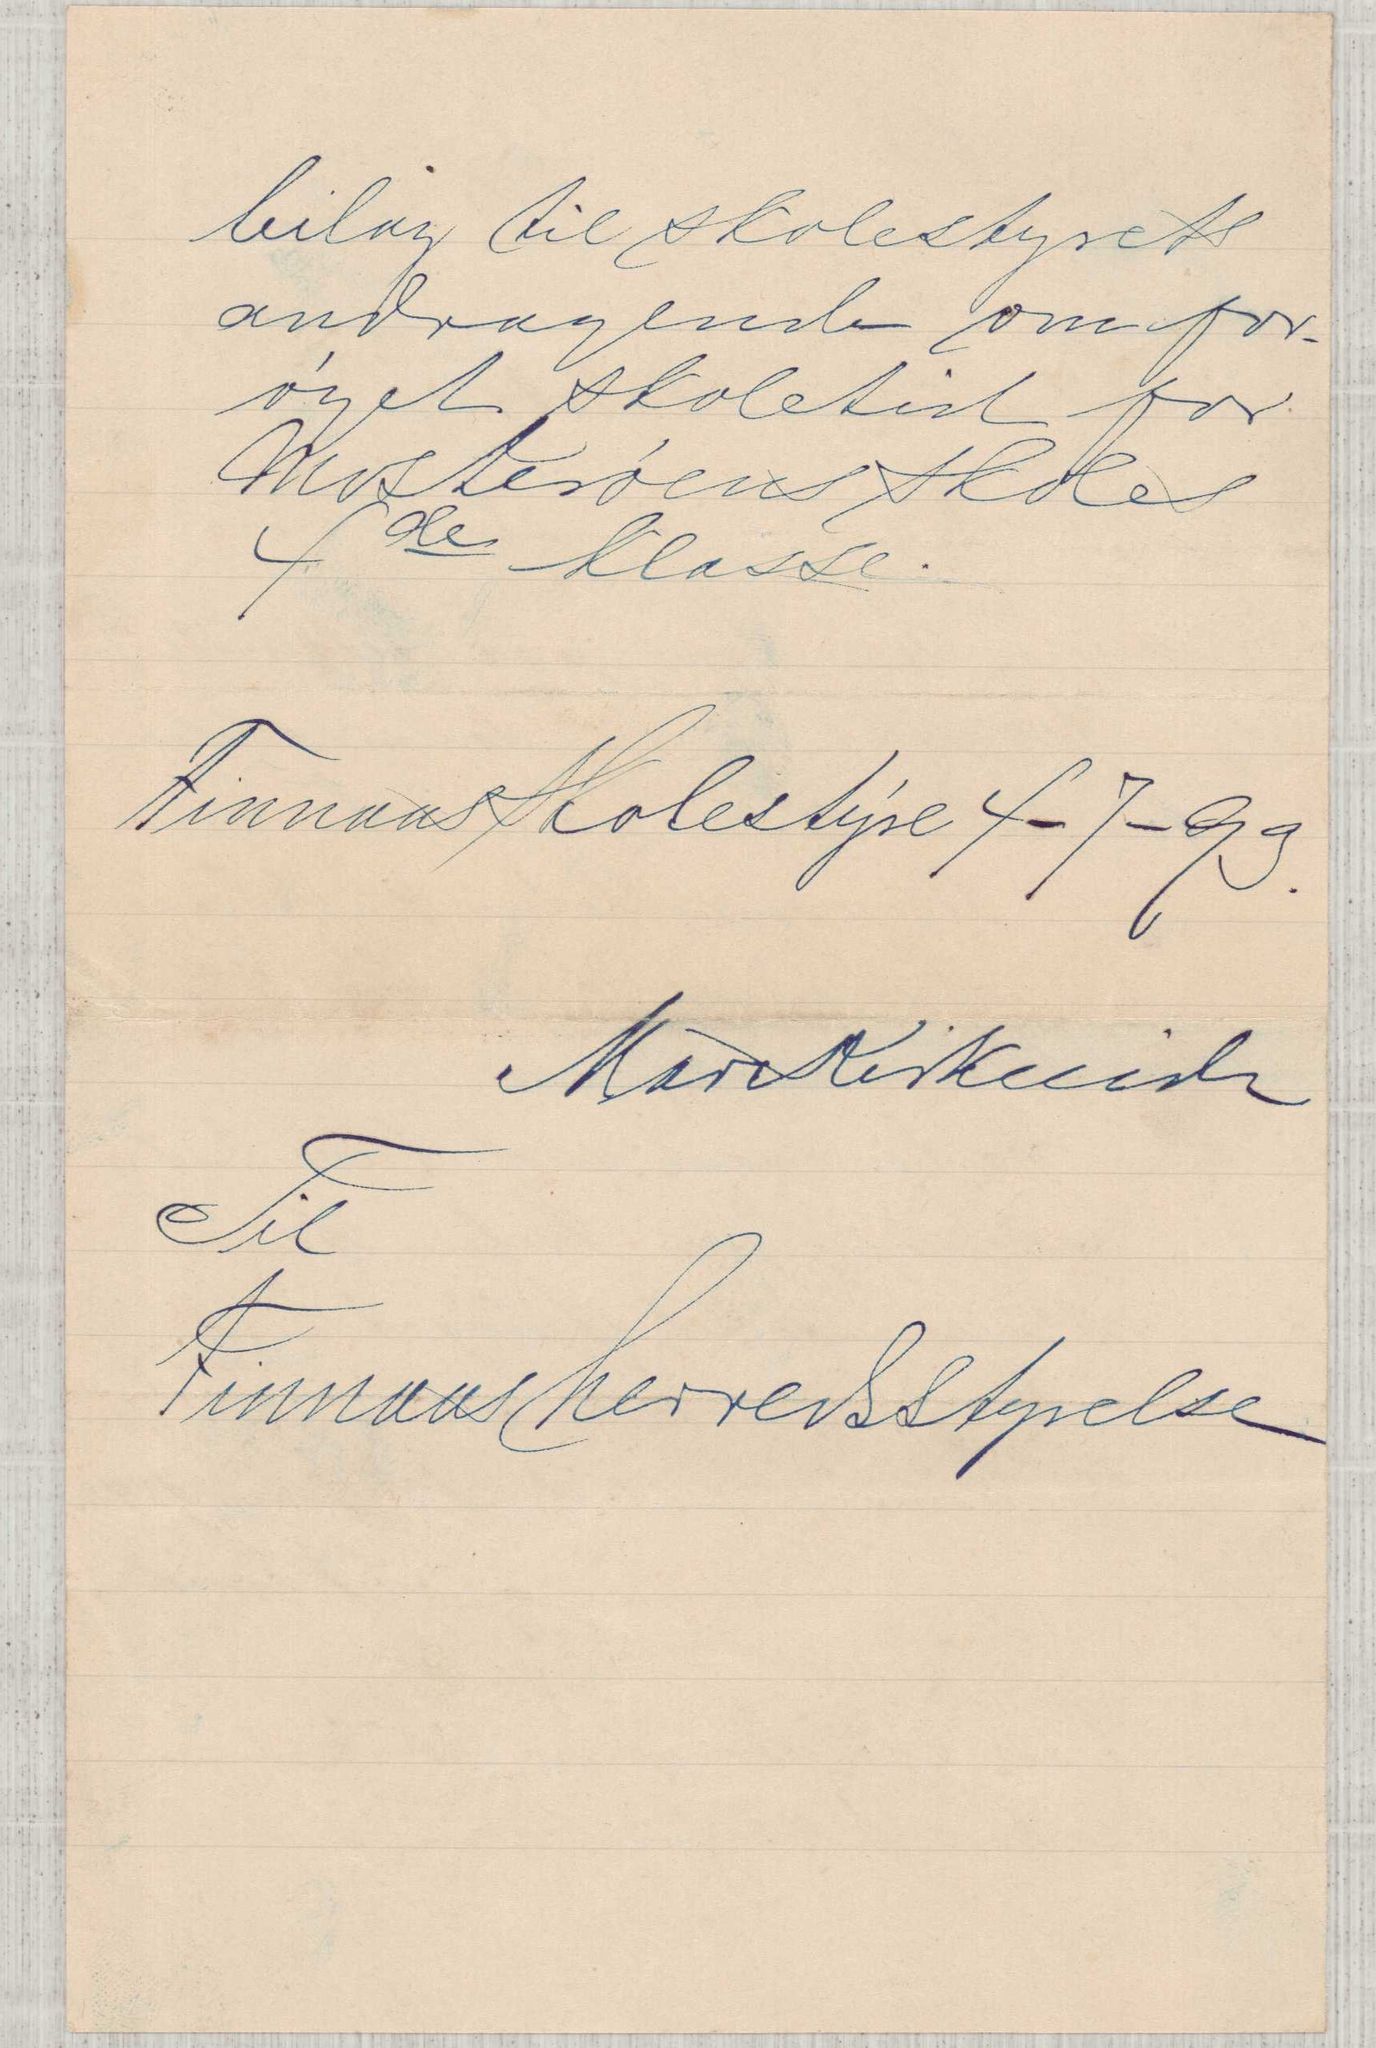 bilag til skolestyrets
andragende om for-
øget skoletid for
Mosterøens skoles
4de klasse.
Finnaas skolestyre 4-7-93.
Til
Finnaas herredsstyrelse